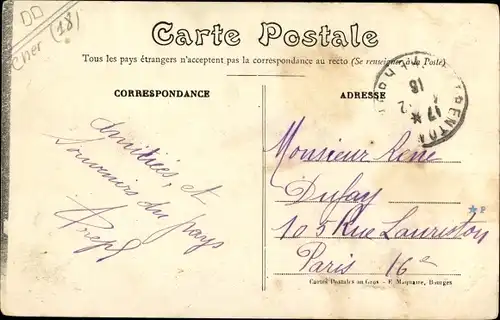 DD
Cher (18)
Carte Postale
Tous les pays étrangers n'acceptent pas la correspondance au recto (Se renseigner à la Poste)
CORRESPONDANCE
Amitiées, et
Souvenirs du pays
ADRESSE
Monsieur Rene
Dufay
105 Rue Lauriston
Paris 16e
Cartes Postales en Gros - E. Maquaire, Bourges